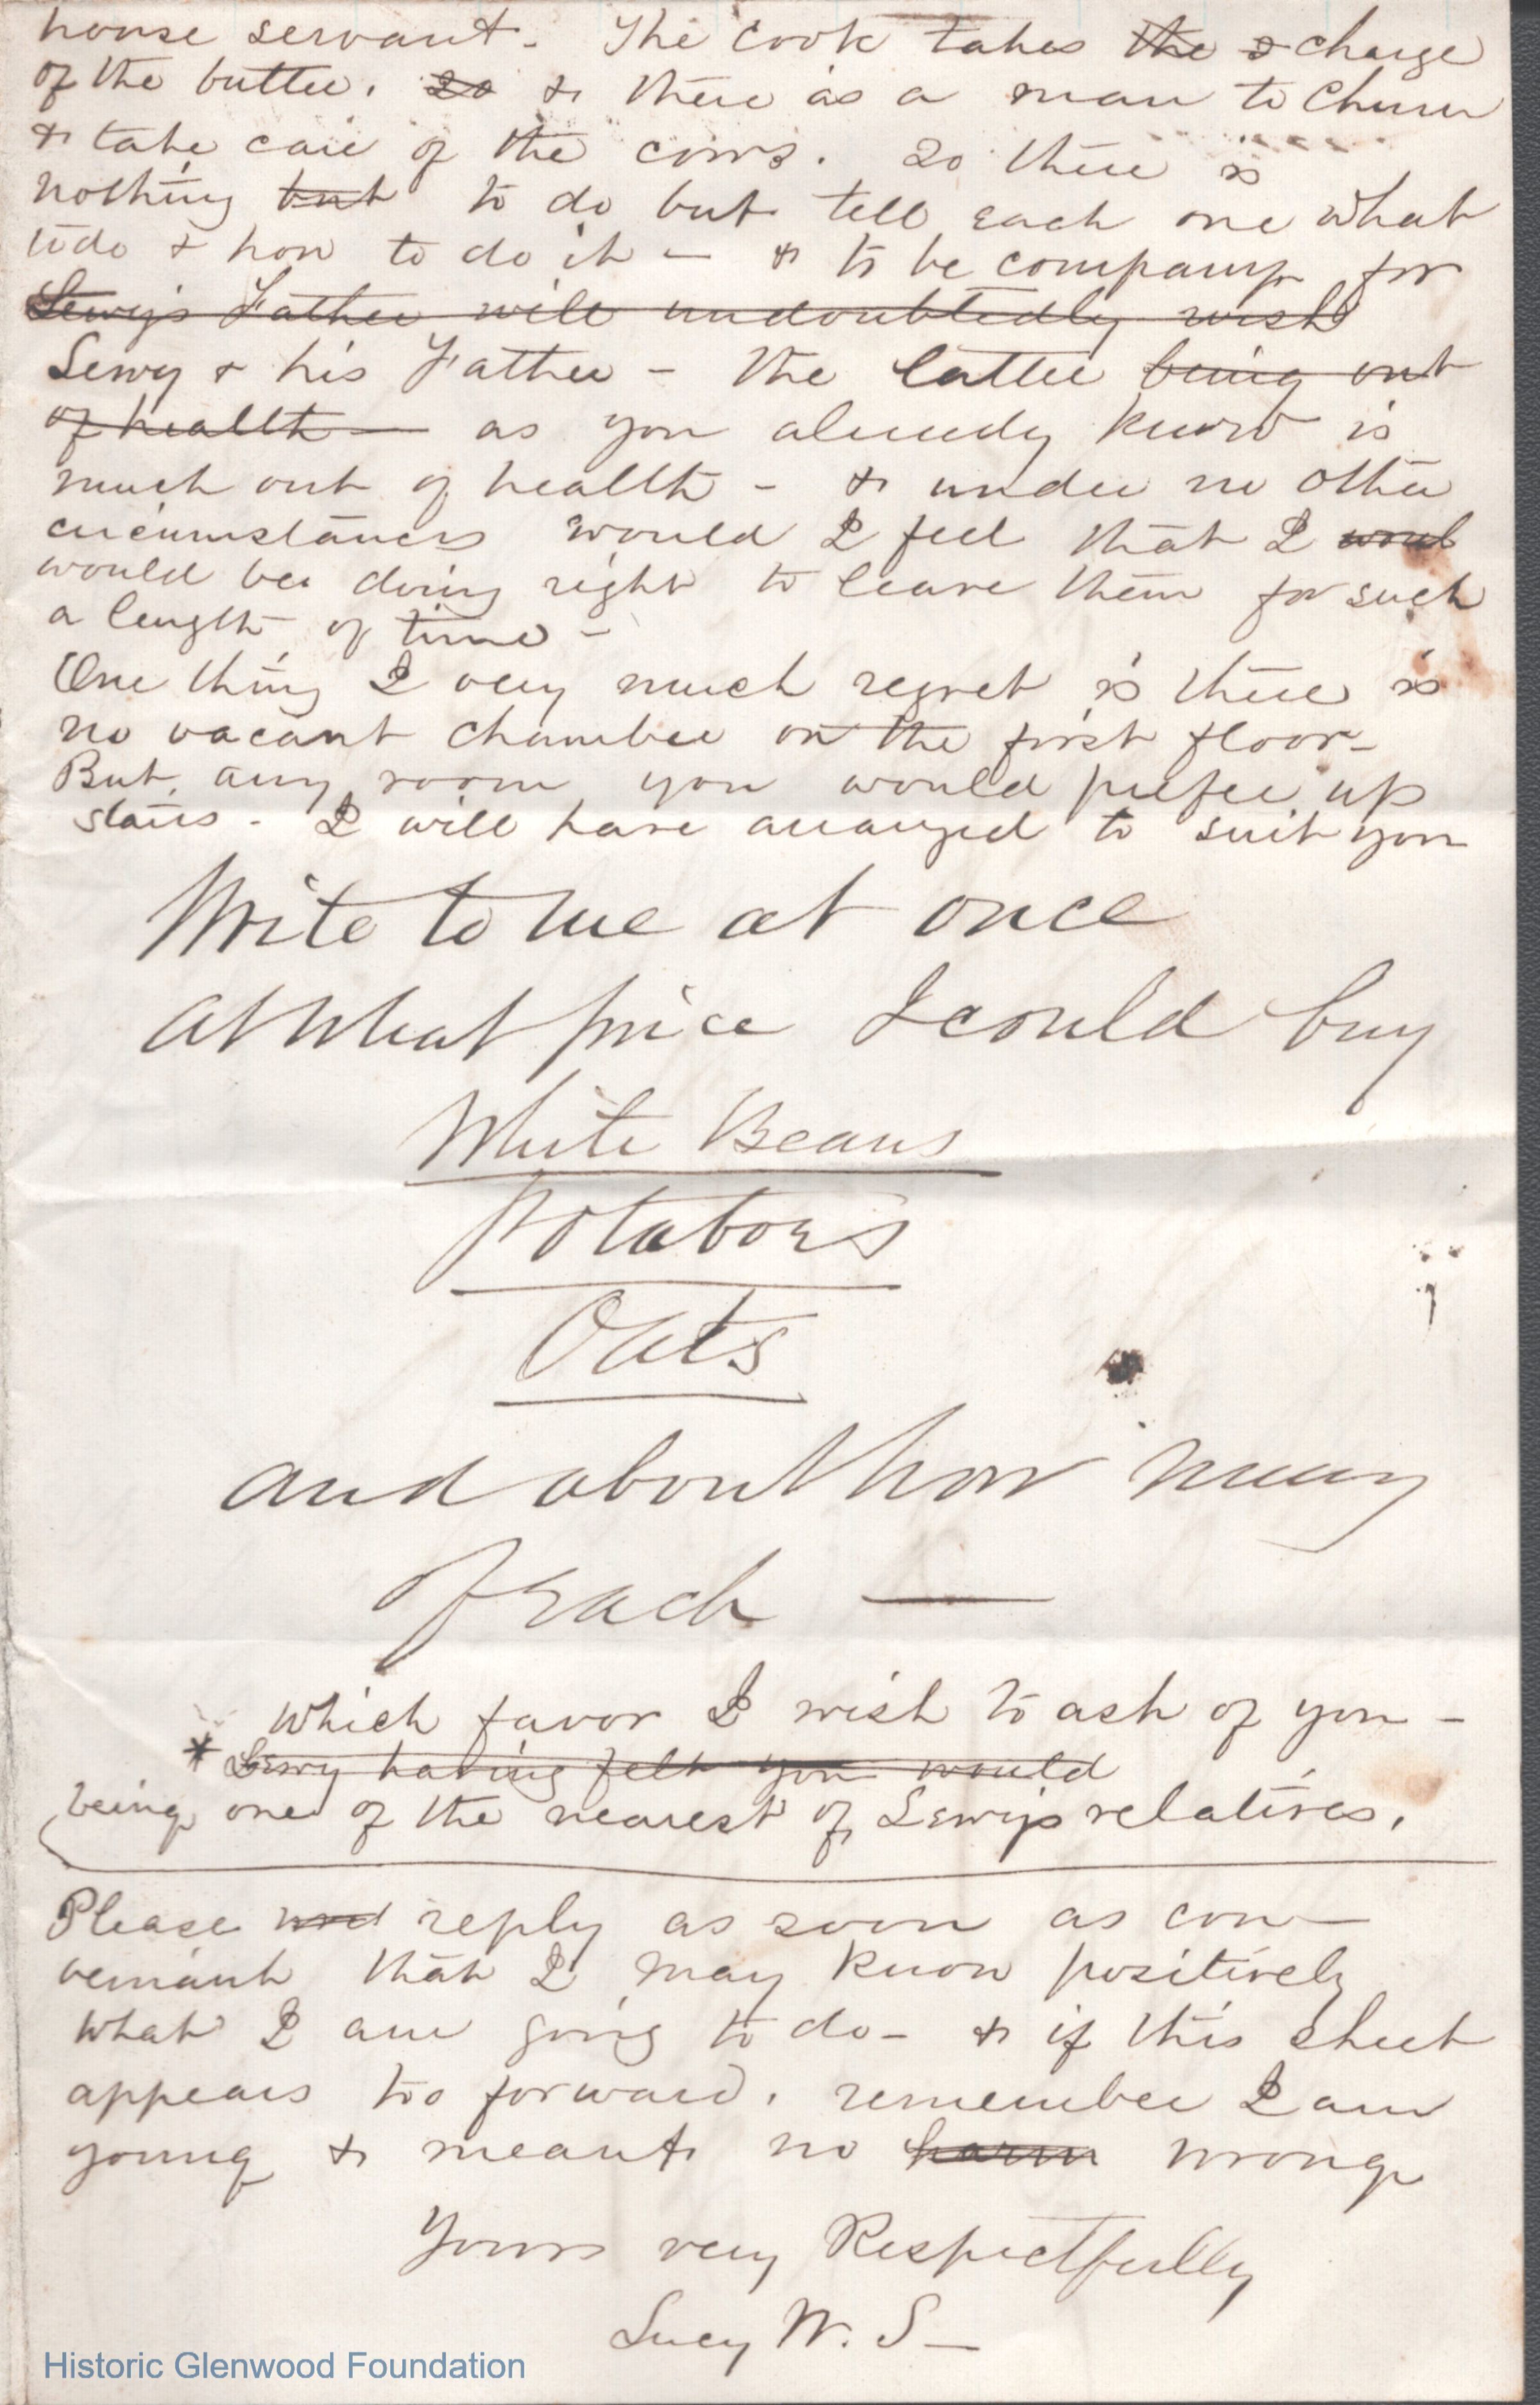 house servant. The cook takes the charge
of the butter. so & there is a man to churn
& take care of the cows. So there is
nothing but to do but tell each one what
to do & how to do it - & to be company for
Lewy's Father will undoubtedly wish
Lewy & his Father - the latter being out
of health - as you already know is
much out of health - & under no other
circumstances would I feel that I woul
would be doing right to leave them for such
a length of time -
One thing I very much regret is there is
no vacant chamber on the first floor -
But any room you would prefer up
stairs - I will have arranged to suit you
Write to me at once
At What price I could buy
White Beans
Potatoes
Oats
and about how many
of each —
which favor I wish to ask of you -
* Lewy having felt you would
being one of the nearest of Lewy's relatives.
Please reply as soon as con-
veniant that I may know positively
what I am going to do - & if this sheet
appears too forward. remember I am
young & meant no harm wrong
Yours very Respectfully
Lucy W. S—
Historic Glenwood Foundation